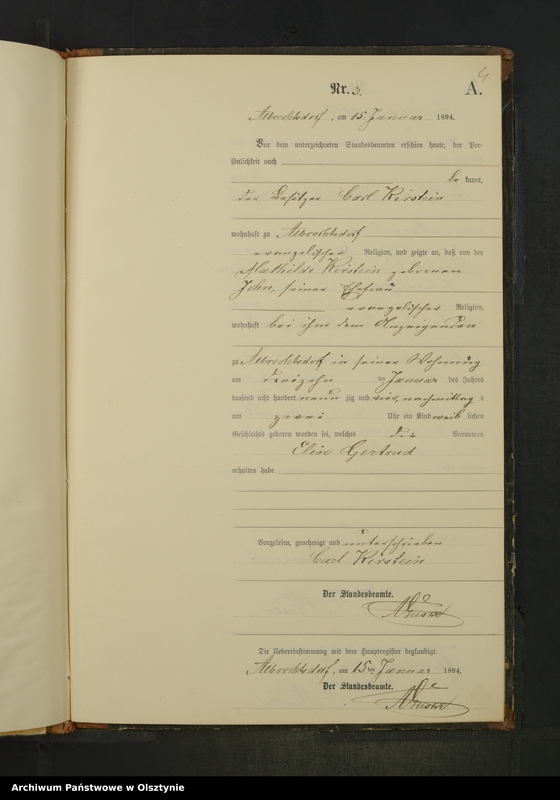 4
Nr. 3. A.
Albrechtsdorf, am 15. Januar 1894.
Vor dem unterzeichneten Standesbeamten erschien heute, der Per-
sönlichkeit nach
be kannt,
der Besitzer Carl Kirstein
wohnhaft zu Albrechtsdorf
evangelischer Religion, und zeigte an, daß von der
Mathilde Kirstein gebornen
John, seiner Ehefrau
evangelischer Religion,
wohnhaft bei ihm dem Anzeigenden
zu Albrechtsdorf in seiner Wohnung
am dreizehn ten Januar des Jahres
tausend acht hundert neun zig und vier, nachmittag s
um zwei Uhr ein Kind weib lichen
Geschlechts geboren worden sei, welches die Vornamen
Elise Gertrud
erhalten habe
Vorgelesen, genehmigt und unterschrieben
Carl Kirstein
Der Standesbeamte.
Die Uebereinstimmung mit dem Hauptregister beglaubigt.
Albrechtsdorf, am 15ten Januar 1894.
Der Standesbeamte.
Archiwum Państwowe w Olsztynie